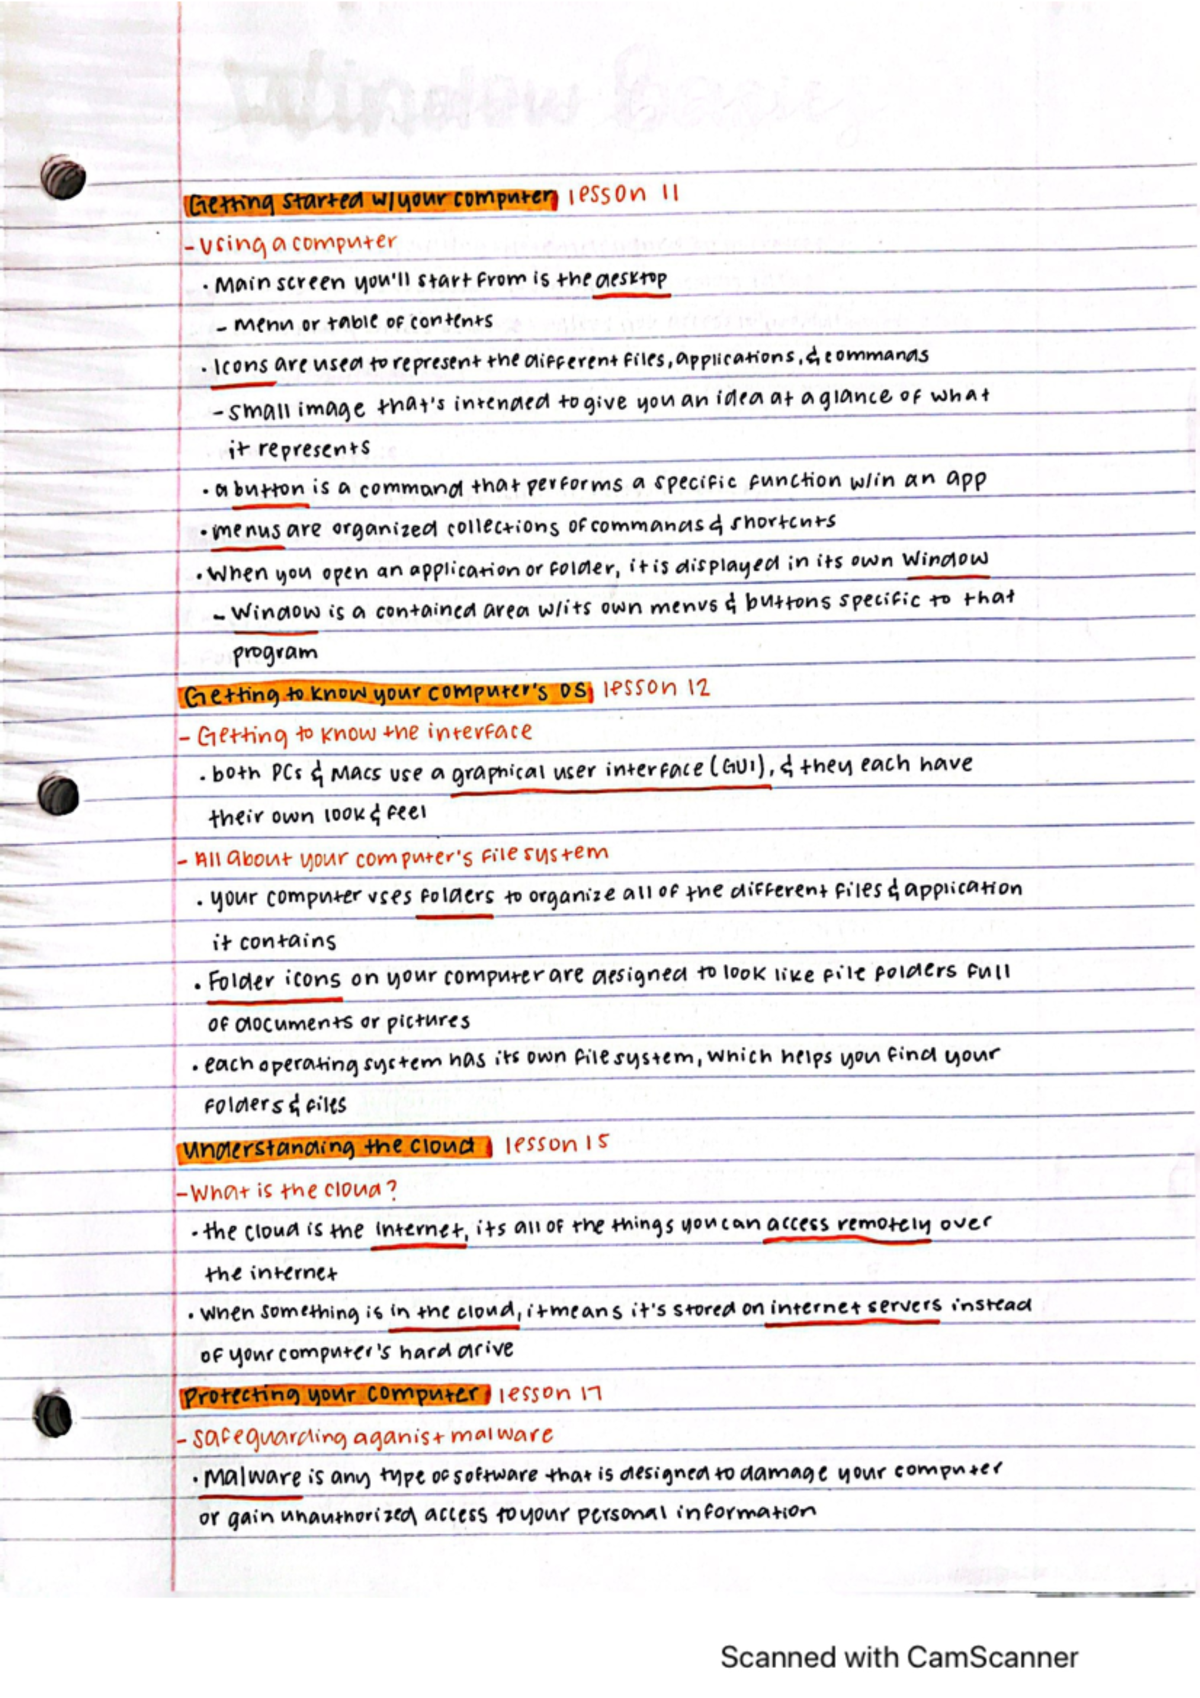 Getting started w/your computer lesson 11
- using a computer
• Main screen you'll start from is the desktop
- menu or table of contents
• Icons are used to represent the different files, applications, & commands
- small image that's intended to give you an idea at a glance of what
it represents
• a button is a command that performs a specific function w/in an app
• menus are organized collections of commands & shortcuts
• When you open an application or folder, it is displayed in its own Window
- Window is a contained area w/its own menus & buttons specific to that
program
Getting to know your computer's OS lesson 12
- Getting to know the interface
• both PCs & Macs use a graphical user interface (GUI), & they each have
their own look & feel
- All about your computer's file system
• your computer uses folders to organize all of the different files & application
it contains
• Folder icons on your computer are designed to look like file folders full
of documents or pictures
• each operating system has its own file system, which helps you find your
folders & files
Understanding the cloud lesson 15
- What is the cloud?
• the cloud is the internet, its all of the things you can access remotely over
the internet
• when something is in the cloud, it means it's stored on internet servers instead
of your computer's hard drive
Protecting your computer lesson 17
- safeguarding aganist malware
• Malware is any type of software that is designed to damage your computer
or gain unauthorized access to your personal information
Scanned with CamScanner